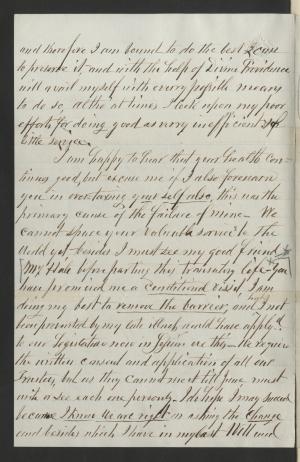 and therefore I am bound to do the best I can
to preserve it, and with the help of Divine Providence
will avail myself with every possible means
to do so, altho at times I look upon my poor
efforts for doing good as very inefficient & of
little service.
I am happy to hear that your health con-
tinues good, but excuse me if I also forewarn
you in overtaxing your self also, this was the
primary cause of the failure of mine - We
cannot spare your valuable service to the
world yet, besides I must see my good friend
Mrs Hale before parting this transitory life - You
have promised me a conditional visit, I am
doing my best to remove the barrier, and if not
been prevented by my late illness, would have applyd
to our Legislature now in session - We require
the written consent and application of all our
Trustees, but as they cannot meet till June, must
see each one personly - I do hope I may succeed
because I know we are right in asking the Change
and besides which I have in my last Will and